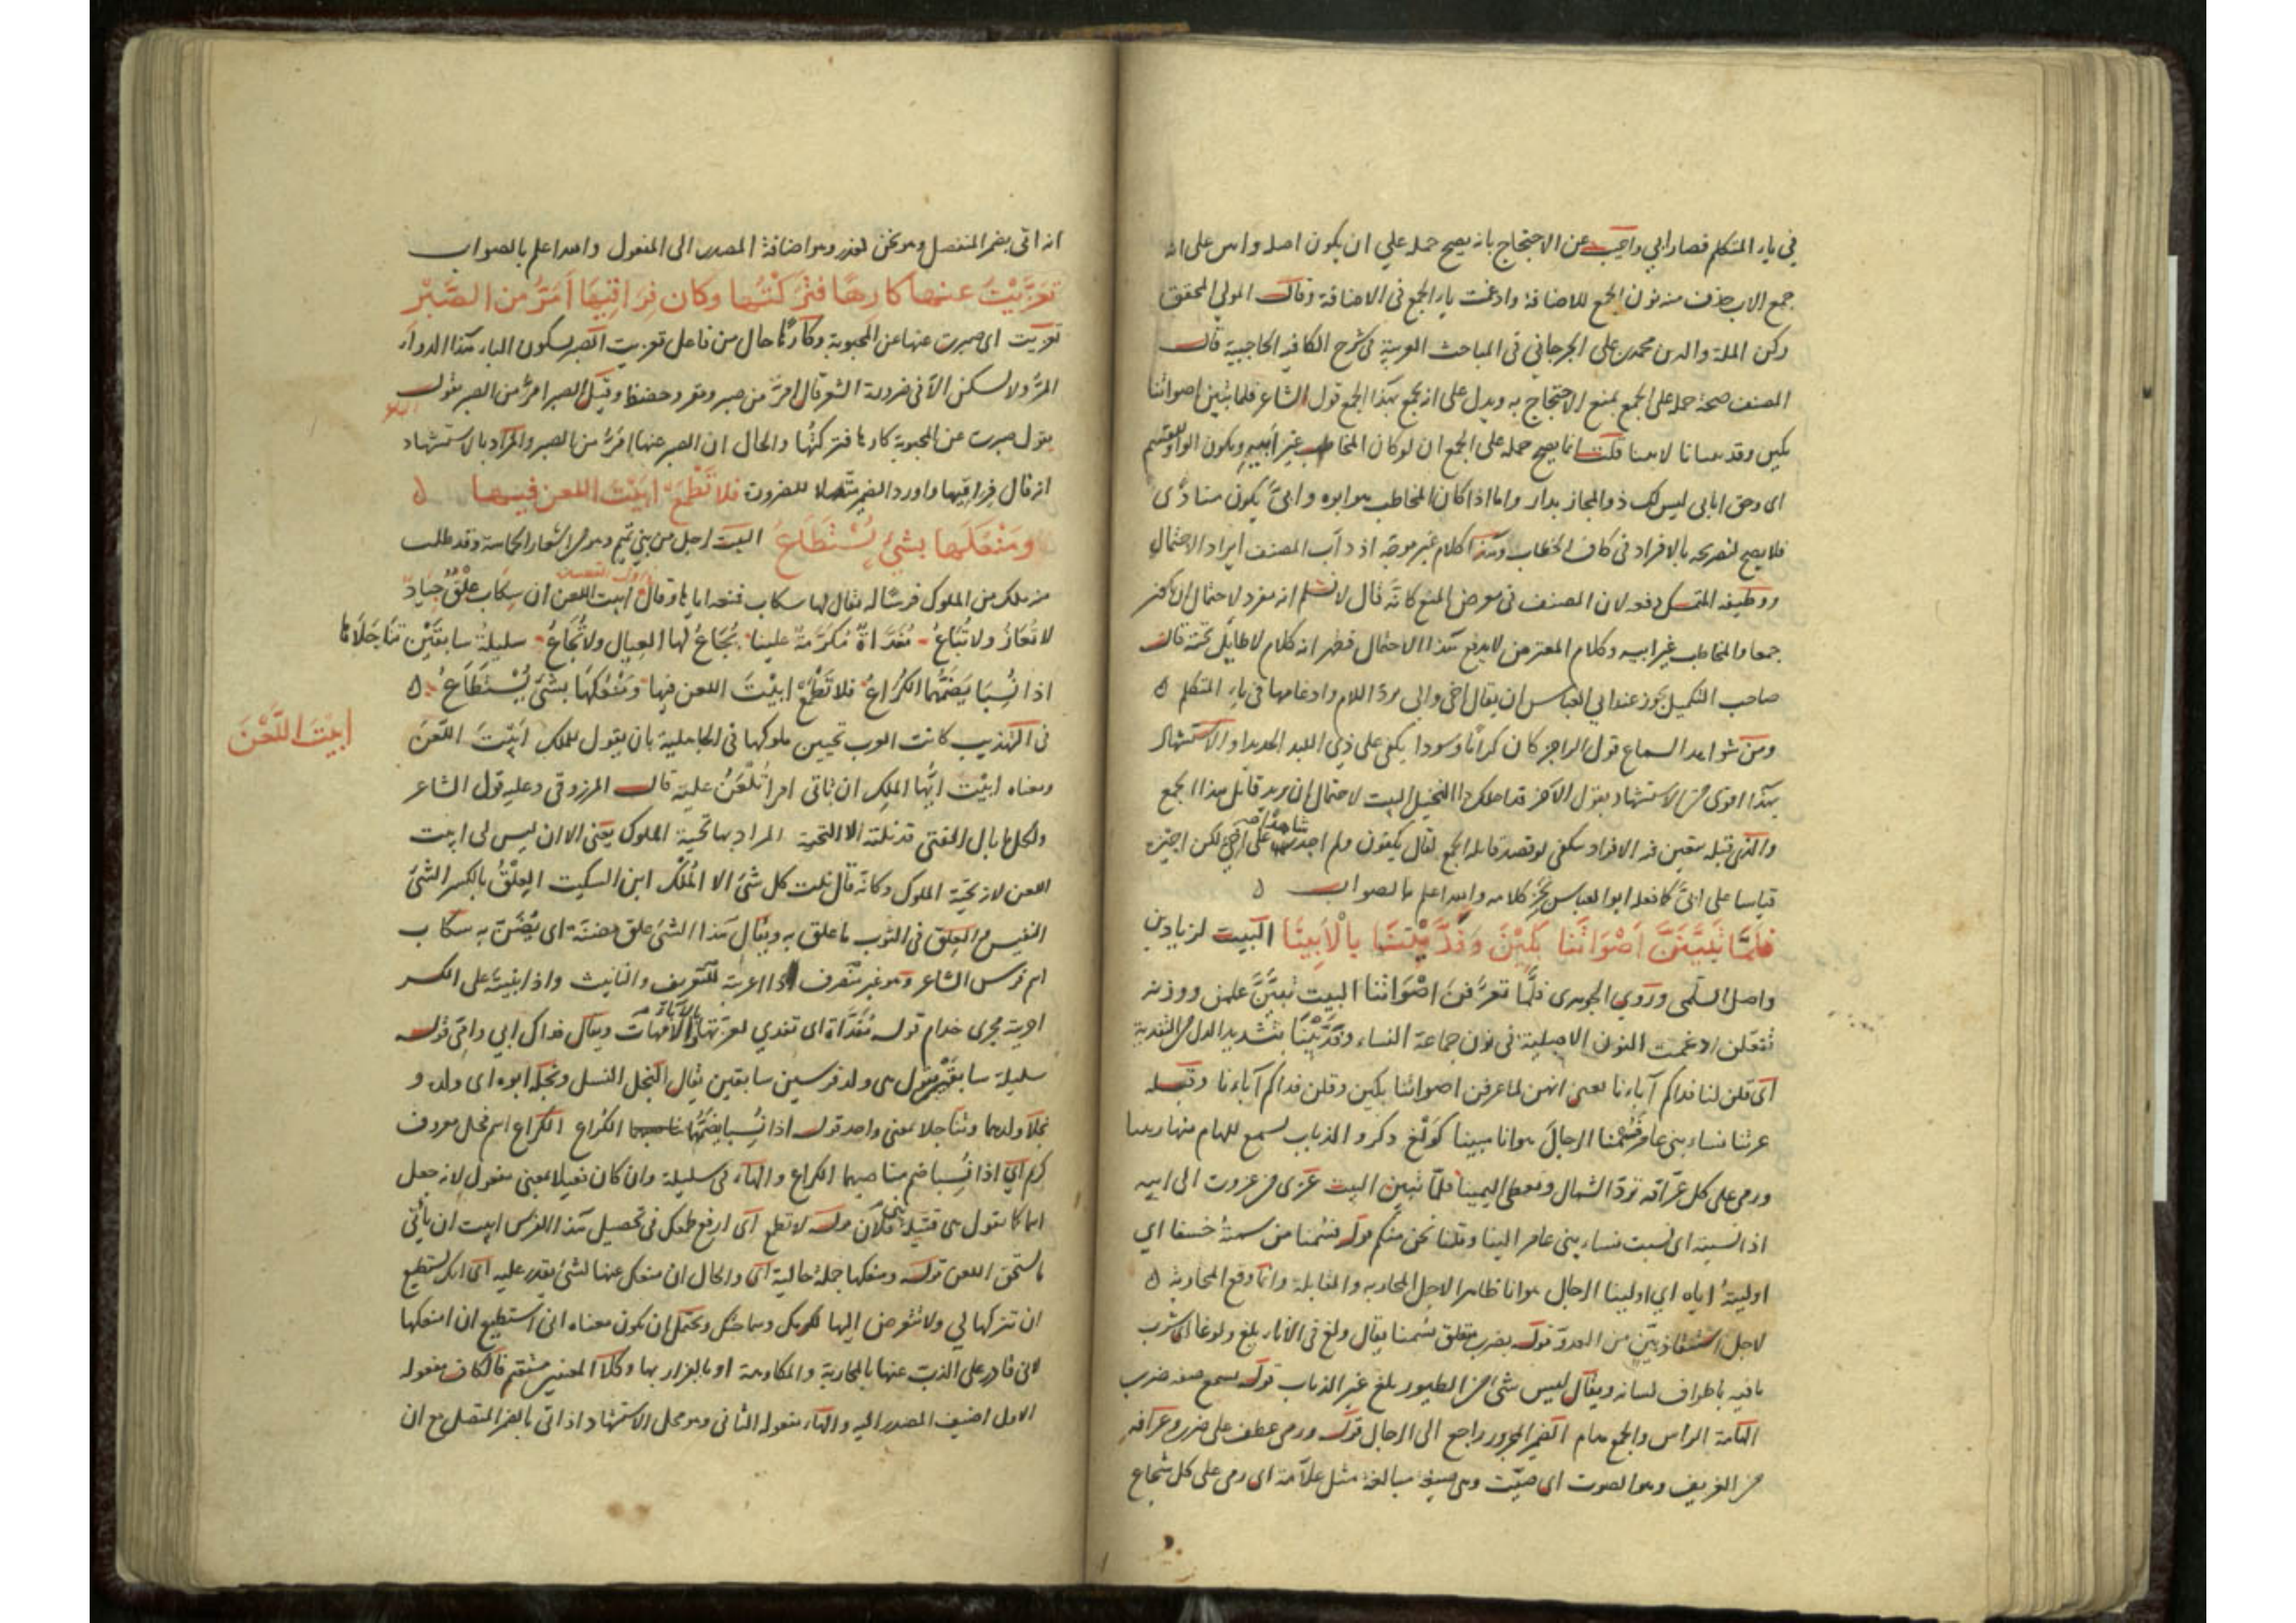 في ياء المتكلم فصار ابي واجيب عن الاحتجاج بانه يصح حمله علي ان يكون اصله وابين على انه
جمع الاب حذف منه نون الجمع للاضافة وادغمت ياء الجمع في الاضافة وقال المولي المحقق
ركن الملة والدين محمد بن على الجرجاني في المباحث العربية في شرح الكافيه الحاجبية قال
المصنف صحة حمله على الجمع يمنع الاحتجاج به ويدل على انه يجمع هذا الجمع قول الشاعر فلما تبين اصواتنا
بكين وقد يننا بالابينا قلت انما يصح حمله على الجمع ان لو كان المخاطب غير ابيه ويكون الواو للقسم
اى وحق ابابي ليس لك ذو المجاز بدار واما اذا كان المخاطب هو ابوه وابيّ يكون منادًى
فلا يصح لتصريحه بالافراد في كاف الخطاب وهذا كلام غير موجّه اذ دأب المصنف ايراد الاحتمال
ووظيفه المتمسك دفعه لان المصنف في معرض المنع كانّه قال لا نسلم انه مفرد لاحتمال ان يكون
جمعا والمخاطب غير ابيه وكلام المعترض لا يدفع هذا الاحتمال فظهر انه كلام لا طايل تحته قال
صاحب التكميل يجوز عند ابي العباس ان يقال اخي وابي بردّ اللام وادغامها في ياء المتكلم ه
ومن شواهد السماع قول الراجز كان ابي كرمًا وسودا يلقي على ذي اللبد الحديدا والاستشهاد
بهذا اقوى من الاستشهاد بقول الاخر قد احلك ذا النخيل البيت لاحتمال ان يريد قائل هذا الجمع
والذي قبله يتعين فيه الافراد يلقى لو قصد قايله الجمع لقال يلقون ولم اجد شاهدا على اخيّ لكن اجيزه
قياسا على ابيّ كما فعله ابو العباس نجز كلامه والله اعلم بالصواب ه
فَلَمَّا تَبَيَّنَّ اَصْوَاتَنَا بَكَيْنَ وَفَدَّيْنَنَا بِالْاَبِينَا البيت لزياد بن
واصل السلمى وروي الجوهرى فلمّا تعرّفن اصْوَاتنا البيت تبيّنَّ علمن ووزنه
تفعّلن ادغمت النون الاصلية في نون جماعة النساء وفَدَّيْنَنَا بتشديد الدال من التفدية
اى قلن لنا فداكم آباءنا يعنى انهن لما عرفن اصواتنا بكين وقلن فداكم آباءنا وقبله
عزتنا نساء بني عامر فسمنا الرجال هوانا مبينا كولْغ ذكرو الذباب يسمع للهام منها رنينا
ورمى على كل عزّافه تردّ الشمال وتعطى اليمينا فلمّا تبين البيت عزى من عزوت الى ابيه
اذا نسبته اى نسبت نساء بني عامر الينا وقلنا نحن منكم قوله فسمنا من سمتهُ خسفا اي
اوليتهُ اياه اي اولينا الرجال هوانا ظاهرا لاجل المحاربه والمقابلة وانما وقع المحاربة ه
لاجل استنقاذهنّ من العدوّ قوله بضرب متعلق بسمنا يقال ولغ في الاناء يلغ ولوغا اى شرب
ما فيه باطراف لسانه ويقال ليس شى من الطيور يلغ غير الذباب قوله يسمع صفة ضرب
الهامة الراس والجمع هام الضمير المجرور راجع الى الرجال قوله ورمى عطف على ضرب وعزّافه
من العزيف وهو الصوت اى صيّت وهى صيغة مبالغة مثل علاّمة اى رمى على كل شجاع
انه اتى بضمير المنفصل وهو نحن لعذر وهو اضافة المصدر الى المفعول والله اعلم بالصواب
تَعَزَّيْتُ عنها كارهًا فتَركْتُها وكان فِرَاقِيْهَا اَمَرَّ من الصَّبْر
تعزيت اى صبرت عنها عن المحبوبة وكارهًا حال من فاعل تعزيت الصبر بسكون الباء هذا الدواء
المرّ ولا يسكن الّا في ضرورة الشعر قال امرّ من صبر ومقر وحضض وقيل الصبر امرّ من الصبر يقول
يقول صبرت عن المحبوبة كارها فتركتُها والحال ان الصبر عنها امرّ من الصبر والمراد بالاستشهاد
انه قال فراقيها واورد الضمير متصلا للضرورة فلا تَطْمَعْ ابَيْتَ اللعن فيها ه
ومَنْعُكَها بشئٍ يُسْتَطَاعُ البيت لرجل من بني تميم وهو من اشعار الحماسة وقد طلب
منه ملك من الملوك فرسًا له يقال لها سكاب فمنعه اياها وقال ابيت اللعن ان سكاب عِلْقٌ جيادٌ
لا تُعارُ ولا تُباعُ مُفَدَّاةٌ مُكَرَّمةٌ علينا يُجَاعُ لها العيال ولا تُجَاعُ سليلةُ سابقَيْن تَنَاجَلَاها
اذا نُسِبَا يَضُمُّهُما الكُرَاعُ فلا تَطْمَعْ ابيْتَ اللعن فيها ومَنْعُكَها بشئٍ يُسْتَطَاعُ ه
في التهذيب كانت العرب تحيين ملوكها في الجاهلية بان يقول للملك ابَيْتَ اللَّعْنَ
ابَيْتَ اللَّعْنَ
ومعناه ابيْت ايّها الملك ان تاتى امرا تُلْعَنُ عليه قال المرزوقي وعليه قول الشاعر
ولكل ما نال الفتى قد نلته الا التحية المراد بها تحية الملوك يعنى الا ان ليس لى ابيت
اللعن لانه تحيّة الملوك وكانّه قال نلت كل شئ الا المُلْك ابن السكيت العِلْقُ بالكسر الشئ
النفيس والعِلق في الثوب ما علق به ويقال هذا الشئ علق مضنّة اى يُضَنّ به سكاب
اسم فرس الشاعر وهو غير متصرف اذا اعربته للتعريف والتانيث واذا بنيته على الكسر
اجريته مجرى حذام قوله مُفَدَّاة اى تفدي لعزتها بالاباء والامّهات ويقال فداك ابي وامّى قوله
سليلة سابقين يقول هى ولد فرسين سابقين يقال النجل النسل ونجله ابوه اى ولده و
نجلا ولدهما وتناجلا بمعنى واحد قوله اذا نُسِبا يضمّهما الكُراع الكُراع اسم فحل معروف
كريم اي اذا نُسبا ضم مناصبهما الكراع والهاء في سليلة وان كان فعيلا بمعنى مفعول لانه جعل
اسما كما يقول هى قتيلة فلان قوله لا تطمع اى ارفع طمعك في تحصيل هذا الفرس ابيت ان ياتى
ما تستحق اللعن قوله ومنعكها جملة حالية اى والحال ان منعك عنها لشئ يقدر عليه اى انك تستطيع
ان تتركها لي ولا تتعرض اليها لكرمك وسماحتك ويحتمل ان يكون معناه انى استطيع ان امنعكها
لانى قادر على الذبّ عنها بالمحاربة والمكاومة او بالفرار بها وكلا المعنيين مستقيم فالكاف مفعوله
الاول اضيف المصدر اليه والهاء مفعوله الثاني وهو محل الاستشهاد اذ اتى بالضمير المتصل مع ان